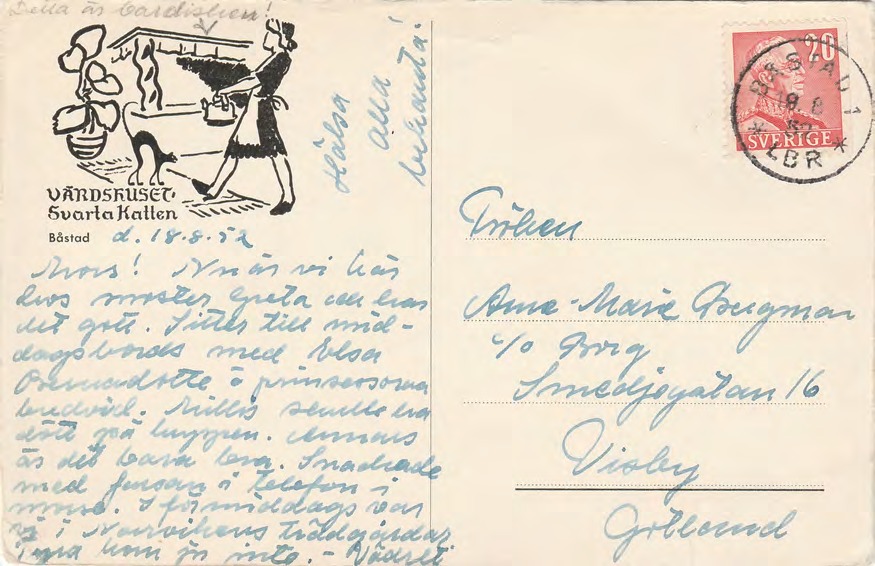 Detta är bardisken!
VÄRDSHUSET
Svarta Katten
Båstad d. 18.8.52
Hälsa
alla
bekanta
Mors! Nu är vi här
hos moster Greta och har
det gott. Sitter till mid-
dagsbords med Elsa
Bernadotte o prinsessorna
bredvid. Millis skulle ha
dött på kuppen. Annars
är det bara bra. Snackade
med farsan i telefon i
morse. I förmiddags var
vi i Norrvikens trädgårdar
kom ju inte. - Vädret
BÅSTAD 1
18. 8
52
* LBR *
20
SVERIGE
Fröken
Anne-Marie Bergman
c/o Borg
Smedjegatan 16
Visby
Gotland